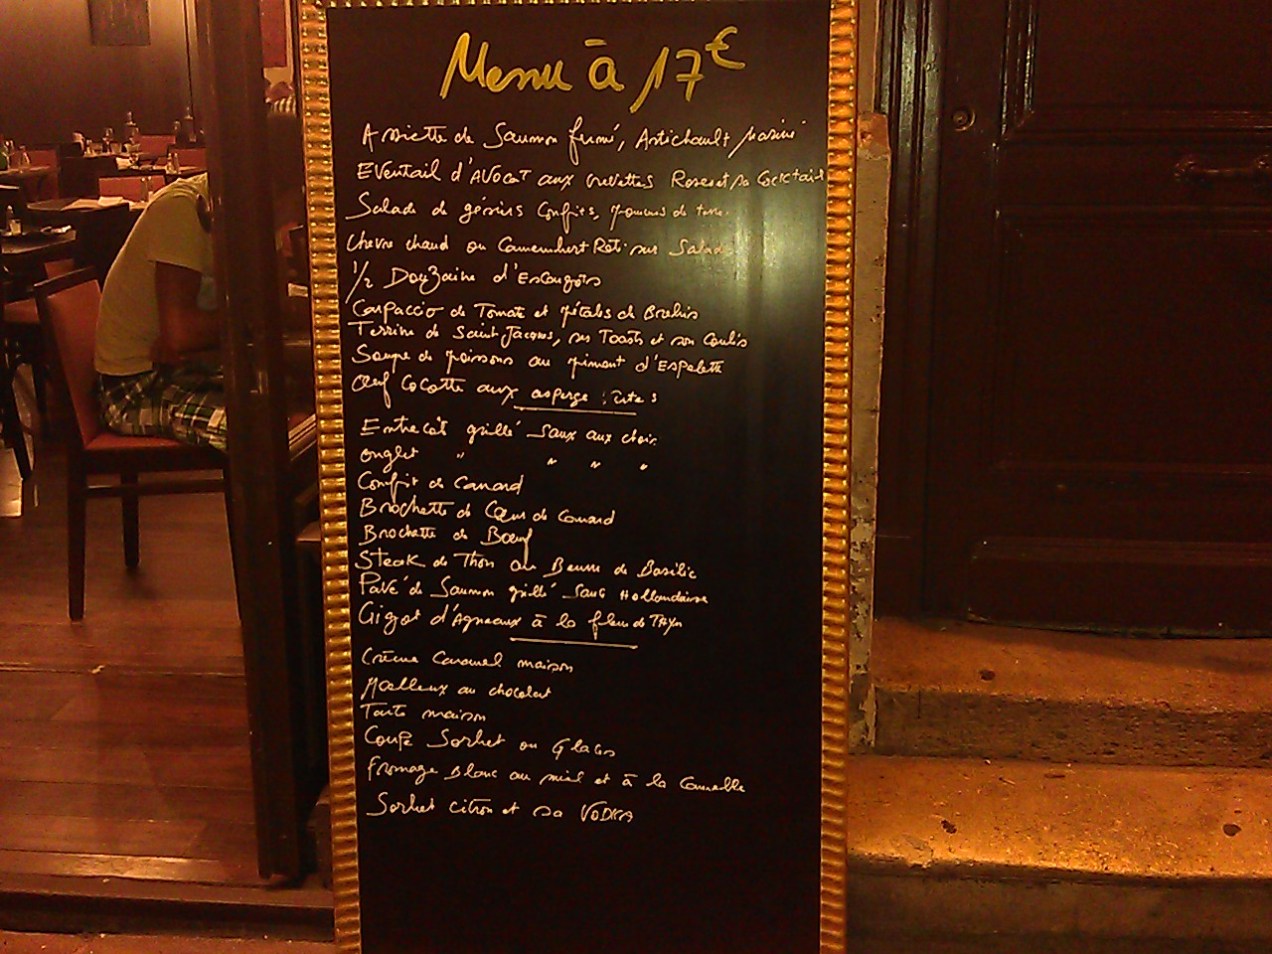 Menu à 17€
Assiette de Saumon fumé, Artichauts marinés
Eventail d'Avocat aux crevettes Roses et sa Cocktail
Salade de gésiers Confits, pommes de terre
Chèvre chaud ou Camembert Rôti sur Salade
1/2 Douzaine d'Escargots
Carpaccio de Tomate et pétales de Brebis
Terrine de Saint Jacques, ses Toasts et son Coulis
Soupe de poissons au piment d'Espelette
Œuf Cocotte aux asperges
Entrecôt grillé Saux aux choix
Onglet " " " "
Confit de Canard
Brochette de Cœur de Canard
Brochette de Bœuf
Steak de Thon au Beurre de Basilic
Pavé de Saumon grillé Sauc Hollandaise
Gigot d'Agneaux à la fleur de Thym
Crème Caramel maison
Moelleux au chocolat
Tarte maison
Coupe Sorbet ou Glaces
Fromage Blanc au miel et à la Cannelle
Sorbet citron et sa VODKA